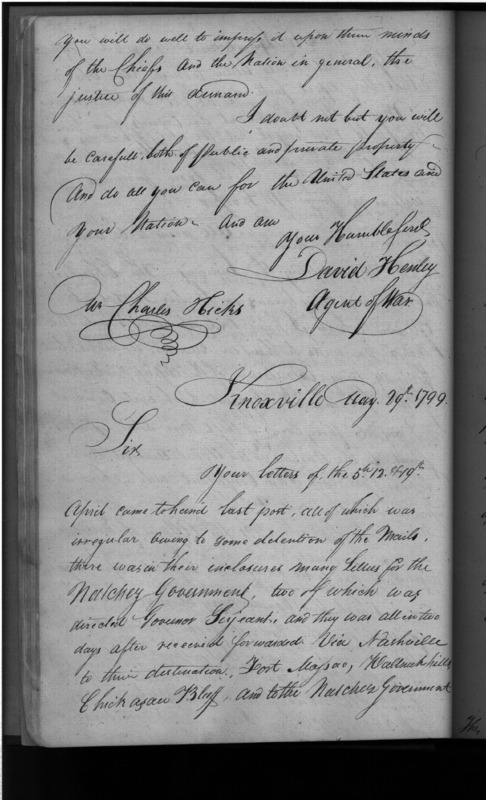 you will do well to impress it upon their minds
of the Chiefs and the Nation in general, the
justice of this demand.
I doubt not but you will
be carefull both of Public and private property
And do all you can for the United States and
your Nation. And am
Your Humble Serv.
David Henley
Agent of War
Mr Charles Hicks
Knoxville May 29th 1799
Sir,
Your letters of the 5th 12. & 19th
April came to hand last post, all of which was
irregular owing to some detention of the Mails,
there was in their enclosures many letters for the
Natchez Government, two of which was
directed Govonor Serjeant, and they was all in two
days after received forwarded Via Nashville
to their destination, Fort Massac,
Chickasaw Bluff, and to the Natchez Government
The